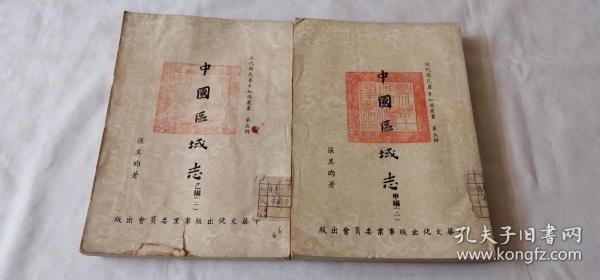 現代國民基本知識叢書 第五輯
中國區域志 乙編(一)
張其昀著
中華文化出版事業委員會出版
現代國民基本知識叢書 第五輯
中國區域志 甲編(二)
張其昀著
中華文化出版事業委員會出版
孔夫子旧书网
kongfz.com